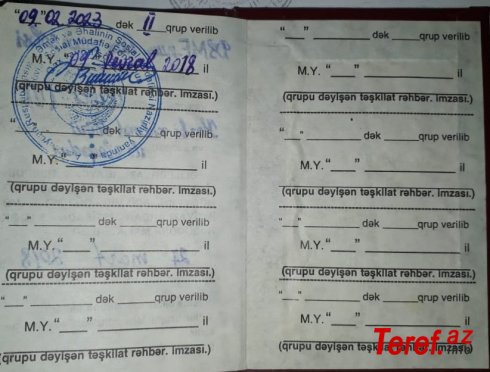 "09" 02 2023 dək II qrup verilib
M.Y. "09" 2018 il
(qrupu dəyişən təşkilat rəhbər. imzası.)
"__" ________ dək _____qrup verilib
M.Y. "___" ____________ il
(qrupu dəyişən təşkilat rəhbər. imzası.)
"__" ________ dək _____qrup verilib
M.Y. "___" ____________ il
(qrupu dəyişən təşkilat rəhbər. imzası.)
"__" ________ dək _____qrup verilib
M.Y. "___" ____________ il
(qrupu dəyişən təşkilat rəhbər. imzası.)
"__" ________ dək _____qrup verilib
M.Y. "___" ____________ il
(qrupu dəyişən təşkilat rəhbər. imzası.)
"__" ________ dək _____qrup verilib
M.Y. "___" ____________ il
(qrupu dəyişən təşkilat rəhbər. imzası.)
"__" ________ dək _____qrup verilib
M.Y. "___" ____________ il
(qrupu dəyişən təşkilat rəhbər. imzası.)
"__" ________ dək _____qrup verilib
M.Y. "___" ____________ il
(qrupu dəyişən təşkilat rəhbər. imzası.)
Teref.az